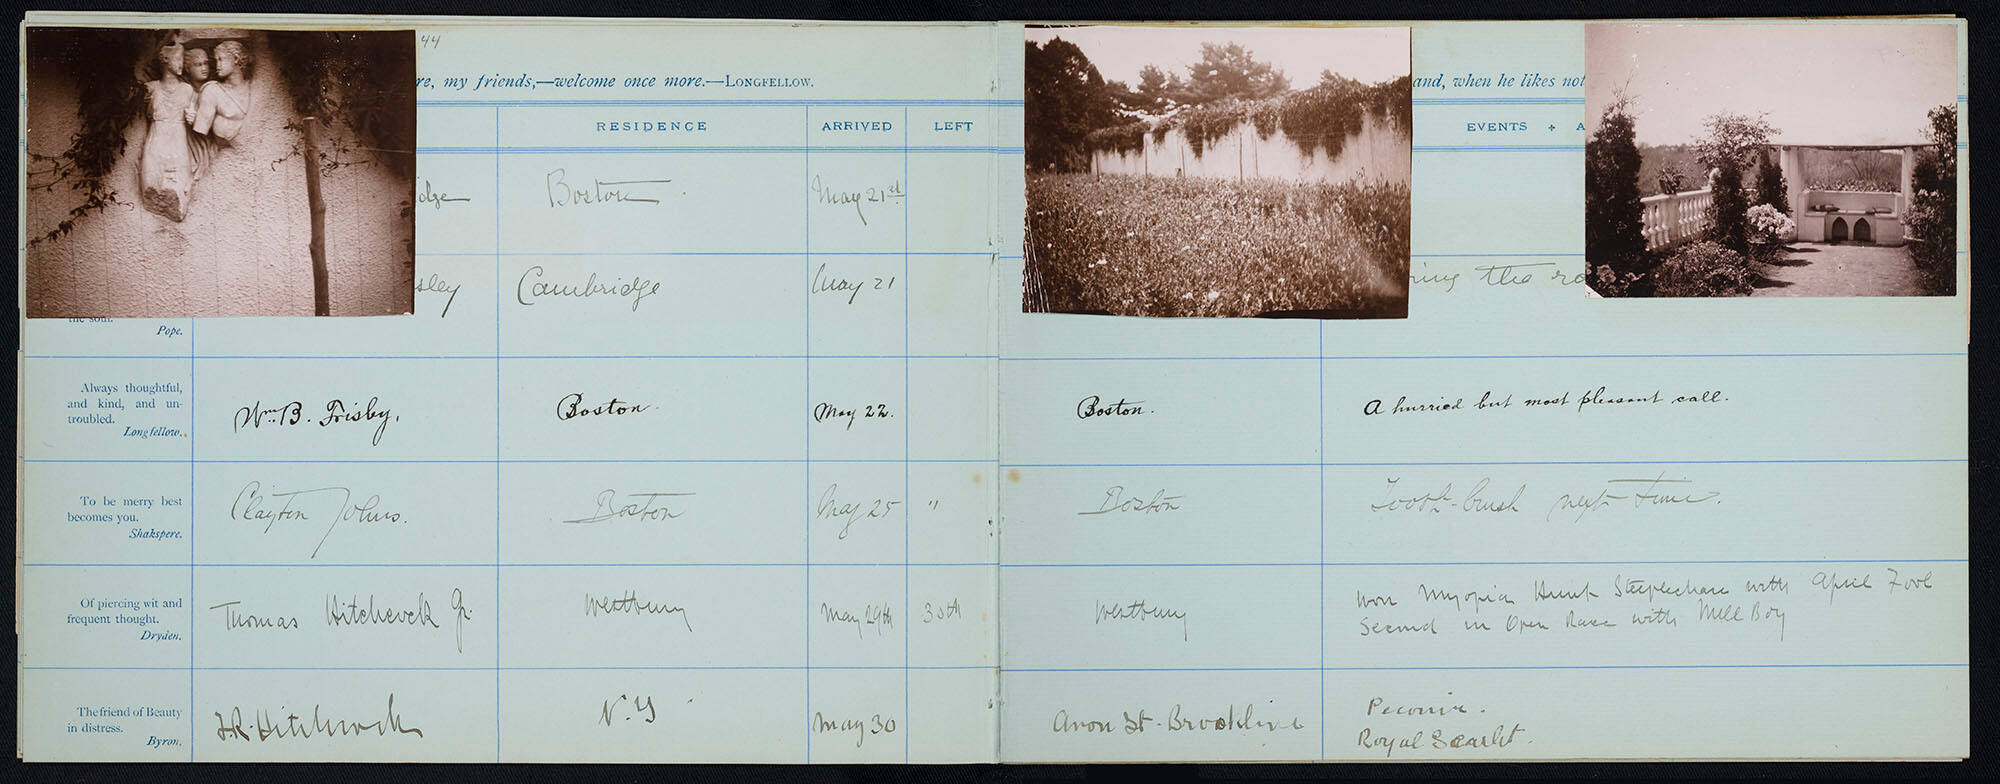 44
re, my friends,—welcome once more.—LONGFELLOW.
and, when he likes not
RESIDENCE ARRIVED LEFT
EVENTS + A
dge Boston May 21st
sley Cambridge May 21
ring the ro
the soul.
Pope.
Always thoughtful,
and kind, and un-
troubled.
Longfellow.
Wm B. Frisby. Boston. May 22. Boston. A hurried but most pleasant call.
To be merry best
becomes you.
Shakspere.
Clayton Johns. Boston May 25 " Boston Tooth-brush next time.
Of piercing wit and
frequent thought.
Dryden.
Thomas Hitchcock Jr. Westbury May 29th 30th Westbury
Won Myopia Hunt Steeplechase with April Fool
Second in Open Race with Mill Boy
The friend of Beauty
in distress.
Byron.
F.R. Hitchcock N.Y May 30 Avon St. Brookline
Royal Scarlet.